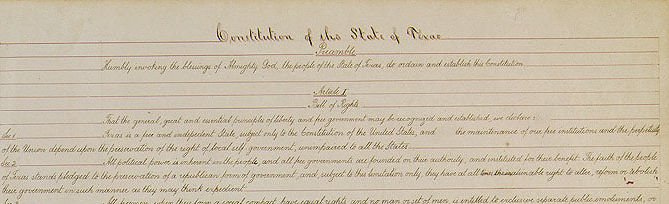 Constitution of the State of Texas
Preamble
Humbly invoking the blessings of Almighty God, the people of the State of Texas, do ordain and establish this Constitution
Article I
Bill of Rights
That the general, great and essential principles of liberty and free government may be recognized and established, we declare:
Sec 1 Texas is a free and independent State, subject only to the Constitution of the United States, and the maintenance of our free institutions and the perpetuity
of the Union depend upon the preservation of the right of local self government, unimpaired to all the States
Sec 2 All political power is inherent in the people, and all free governments are founded on their authority, and instituted for their benefit. The faith of the people
of Texas stands pledged to the preservation of a republican form of government, and, subject to this limitation only, they have at all times the inalienable right to alter, reform or abolish
their government in such manner as they may think expedient.
All freemen when they form a social compact have equal rights, and no man or set of men is entitled to exclusive separate public emoluments, or